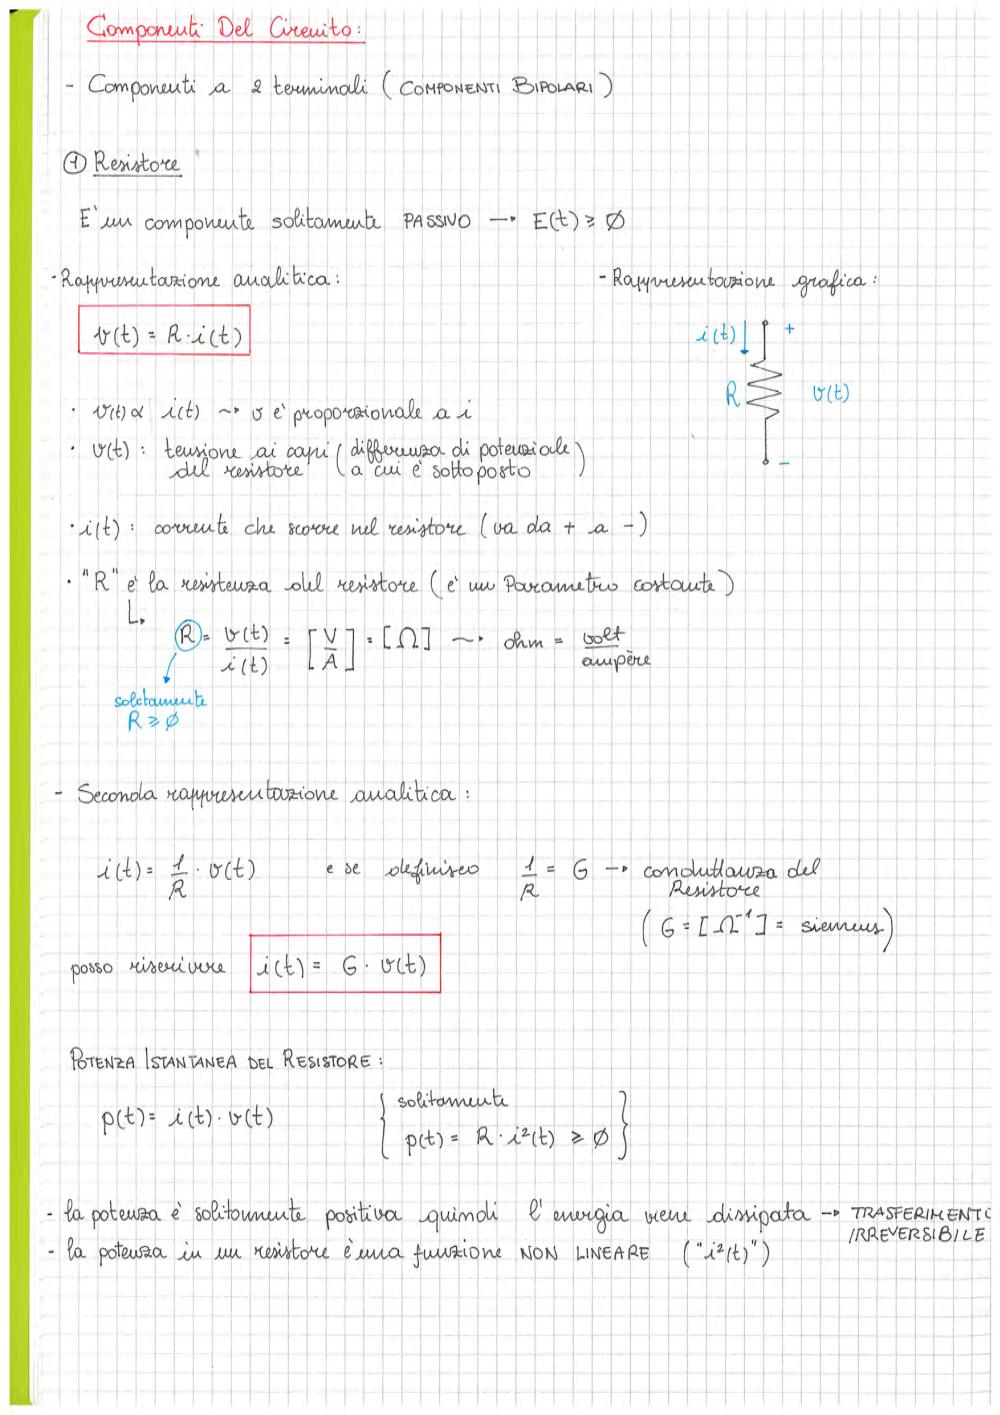 Componenti Del Circuito:
- Componenti a 2 terminali (COMPONENTI BIPOLARI)
① Resistore
E' un componente solitamente PASSIVO → E(t) ≥ Ø
- Rappresentazione analitica:
v(t) = R · i(t)
- Rappresentazione grafica:
i(t) ↓ +
R v(t)
-
· v(t) ∝ i(t) ⇝ v è proporzionale a i
· v(t) : tensione ai capi (differenza di potenziale
del resistore a cui è sottoposto)
· i(t) : corrente che scorre nel resistore (va da + a -)
· "R" è la resistenza del resistore (è un Parametro costante)
R = v(t)/i(t) = [V/A] = [Ω] ⇝ ohm = volt/ampère
solitamente
R ≥ Ø
- Seconda rappresentazione analitica:
i(t) = 1/R · v(t) e se definisco 1/R = G → conduttanza del
Resistore
(G = [Ω⁻¹] = siemens)
posso riscrivere i(t) = G · v(t)
POTENZA ISTANTANEA DEL RESISTORE:
p(t) = i(t) · v(t) { solitamente
p(t) = R · i²(t) ≥ Ø }
- la potenza è solitamente positiva quindi l'energia viene dissipata → TRASFERIMENTO
IRREVERSIBILE
- la potenza in un resistore è una funzione NON LINEARE ("i²(t)")